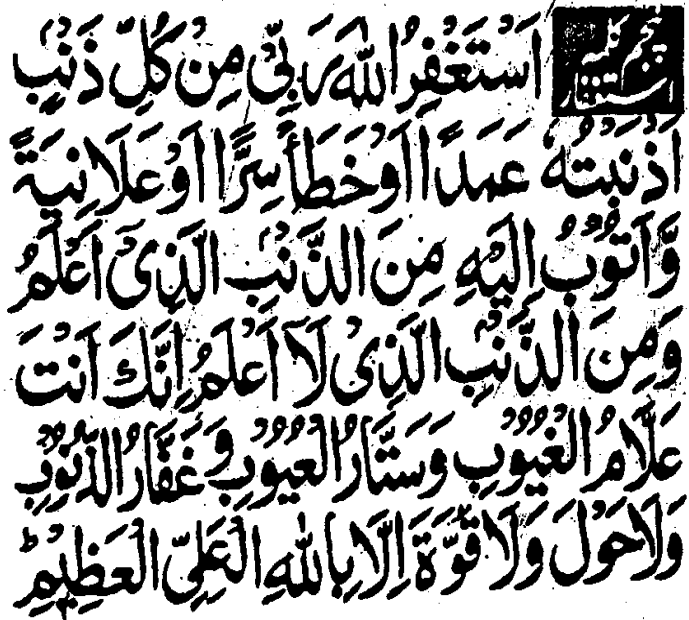 پنجم کلمہ استغفار
اَسْتَغْفِرُ اللهَ رَبِّیْ مِنْ كُلِّ ذَنْۢبٍ
اَذْنَبْتُهٗ عَمَدًا اَوْ خَطَأً سِرًّا اَوْ عَلَانِيَةً
وَّاَتُوْبُ اِلَيْهِ مِنَ الذَّنْۢبِ الَّذِیْ اَعْلَمُ
وَمِنَ الذَّنْۢبِ الَّذِیْ لَآ اَعْلَمُ اِنَّكَ اَنْتَ
عَلَّامُ الْغُيُوْبِ وَسَتَّارُ الْعُيُوْبِ وَغَفَّارُ الذُّنُوْبِ
وَلَا حَوْلَ وَلَا قُوَّةَ اِلَّا بِاللهِ الْعَلِیِّ الْعَظِيْمِؕ